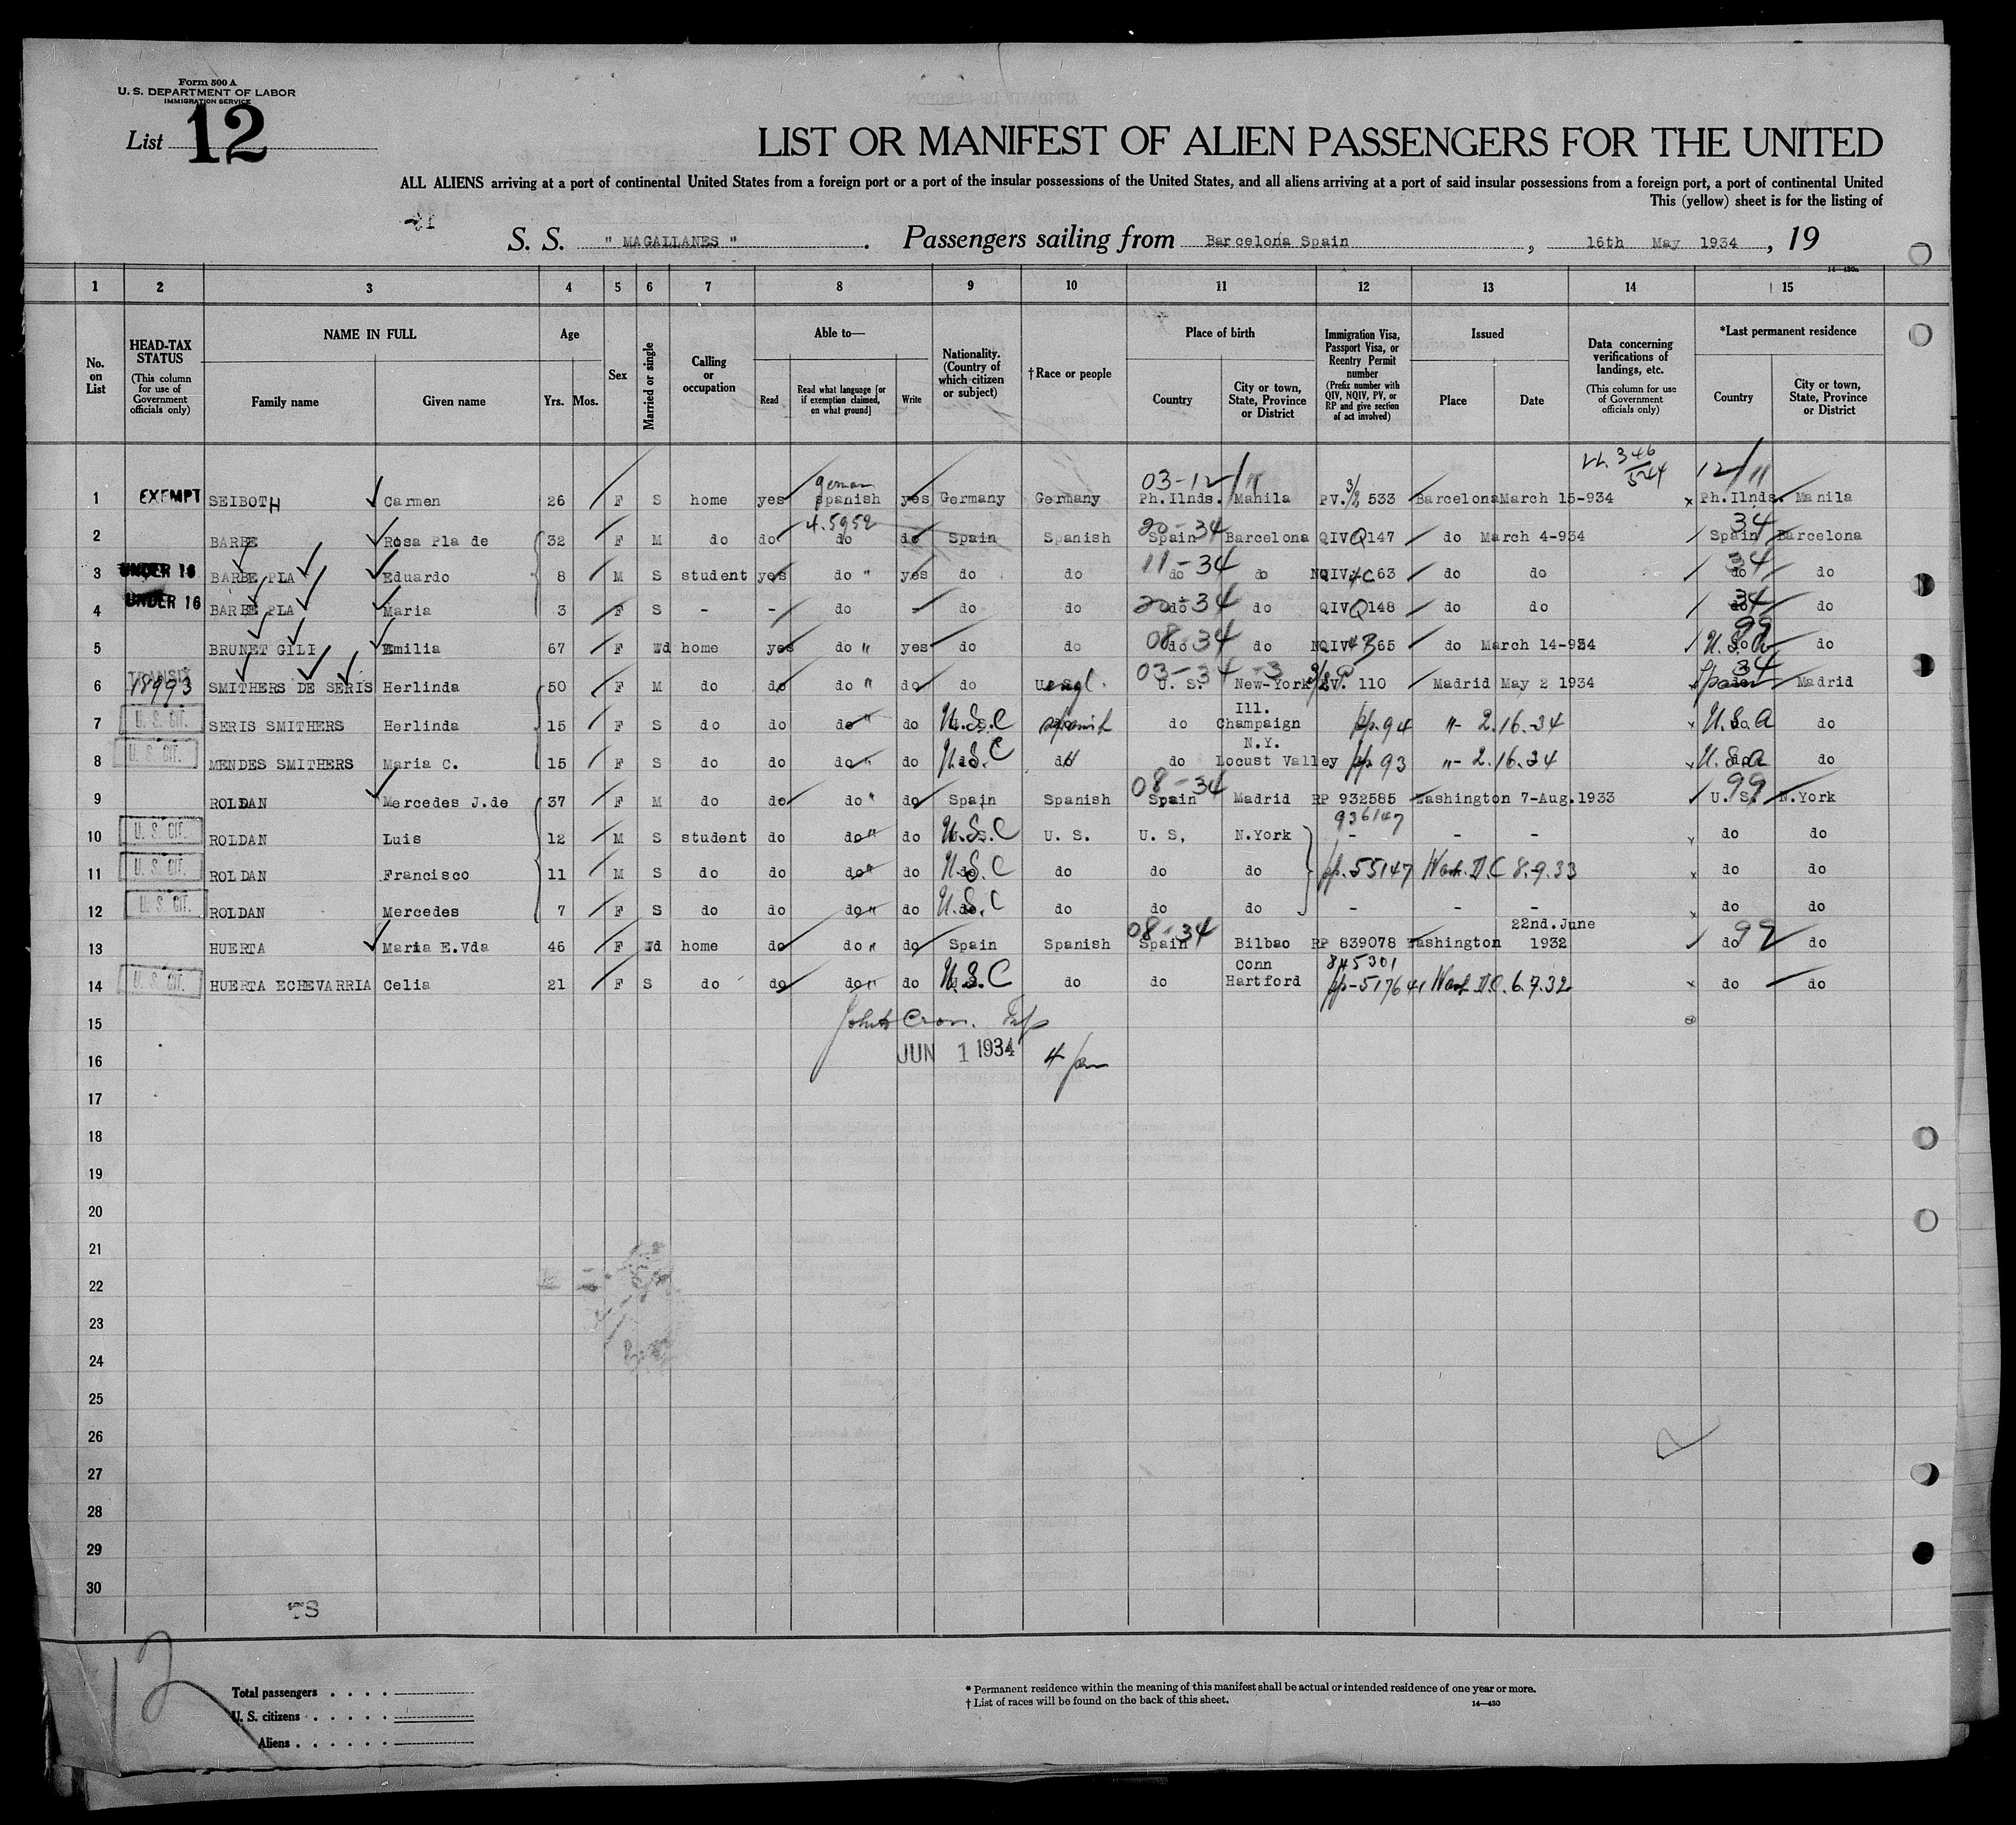 Form 500 A
U. S. DEPARTMENT OF LABOR
IMMIGRATION SERVICE
List 12
LIST OR MANIFEST OF ALIEN PASSENGERS FOR THE UNITED
ALL ALIENS arriving at a port of continental United States from a foreign port or a port of the insular possessions of the United States, and all aliens arriving at a port of said insular possessions from a foreign port, a port of continental United
This (yellow) sheet is for the listing of
S. S. " MAGALLANES " . Passengers sailing from Barcelona Spain , 16th May 1934 , 19
1 2 3 4 5 6 7 8 9 10 11 12 13 14 15
No. on List
HEAD-TAX STATUS (This column for use of Government officials only)
NAME IN FULL Family name Given name
Age Yrs. Mos.
Sex
Married or single
Calling or occupation
Able to— Read Read what language [or if exemption claimed, on what ground] Write
Nationality. (Country of which citizen or subject)
†Race or people
Place of birth Country City or town, State, Province or District
Immigration Visa, Passport Visa, or Reentry Permit number (Prefix number with QIV, NQIV, PV, or RP and give section of act involved)
Issued Place Date
Data concerning verifications of landings, etc. (This column for use of Government officials only)
*Last permanent residence Country City or town, State, Province or District
03-12/11 346 544 12/11
1 EXEMPT SEIBOTH Carmen 26 F S home yes german spanish yes Germany Germany Ph.Ilnds. Manila PV. 3/2 533 Barcelona March 15-934 Ph.Ilnds. Manila
4.5952 20-34 34
2 BARBE Rosa Pla de 32 F M do do do do Spain Spanish Spain Barcelona QIV Q 147 do March 4-934 Spain Barcelona
3 UNDER 16 BARBE PLA Eduardo 8 M S student yes do " yes do do 11-34 do do NQIV 4C 63 do do 34 do do
4 UNDER 16 BARBE PLA Maria 3 F S - - do - do do 20-34 do do QIV Q 148 do do 34 do do
5 BRUNET GILI Emilia 67 F Wd home yes do " yes do do 08-34 do do NQIV 365 do March 14-934 99 U.S.A do
6 TRANSIT 18993 SMITHERS DE SERIS Herlinda 50 F M do do do " do do engl. 03-34 U. S. New-York PV. 110 Madrid May 2 1934 34 Spain Madrid
7 U. S. CIT. SERIS SMITHERS Herlinda 15 F S do do do " do U.S.C spanish do Ill. Champaign pp.94 " 2.16.34 U.S.A do
8 U. S. CIT. MENDES SMITHERS Maria C. 15 F S do do do " do U.S.C do N.Y. Locust Valley pp 93 " 2.16.34 U.S.A do
9 ROLDAN Mercedes J.de 37 F M do do do " do Spain Spanish 08-34 Spain Madrid RP 932585 Washington 7-Aug.1933 99 U. S. N.York
936147
10 U. S. CIT. ROLDAN Luis 12 M S student do do " do U.S.C U. S. U. S, N.York - - - do do
11 U. S. CIT. ROLDAN Francisco 11 M S do do do " do U.S.C do do do pp.55147 Wash. D.C 8.9.33 do do
12 U. S. CIT. ROLDAN Mercedes 7 F S do do do " do U.S.C do do do - - - do do
13 HUERTA Maria E.Vda 46 F Wd home do do " do Spain Spanish 08-34 Spain Bilbao RP 839078 Washington 22nd.June 1932 99 do do
845301
14 U. S. CIT. HUERTA ECHEVARRIA Celia 21 F S do do do " do U.S.C do do Conn Hartford pp-517641 Wash D.C. 6.9.32 do do
15
16 JUN 1 1934 4 pm
17
18
19
20
21
22
23
24
25
26
27
28
29
30
12
Total passengers . . . .
U. S. citizens . . . . .
Aliens . . . . . .
* Permanent residence within the meaning of this manifest shall be actual or intended residence of one year or more.
† List of races will be found on the back of this sheet.
14—430